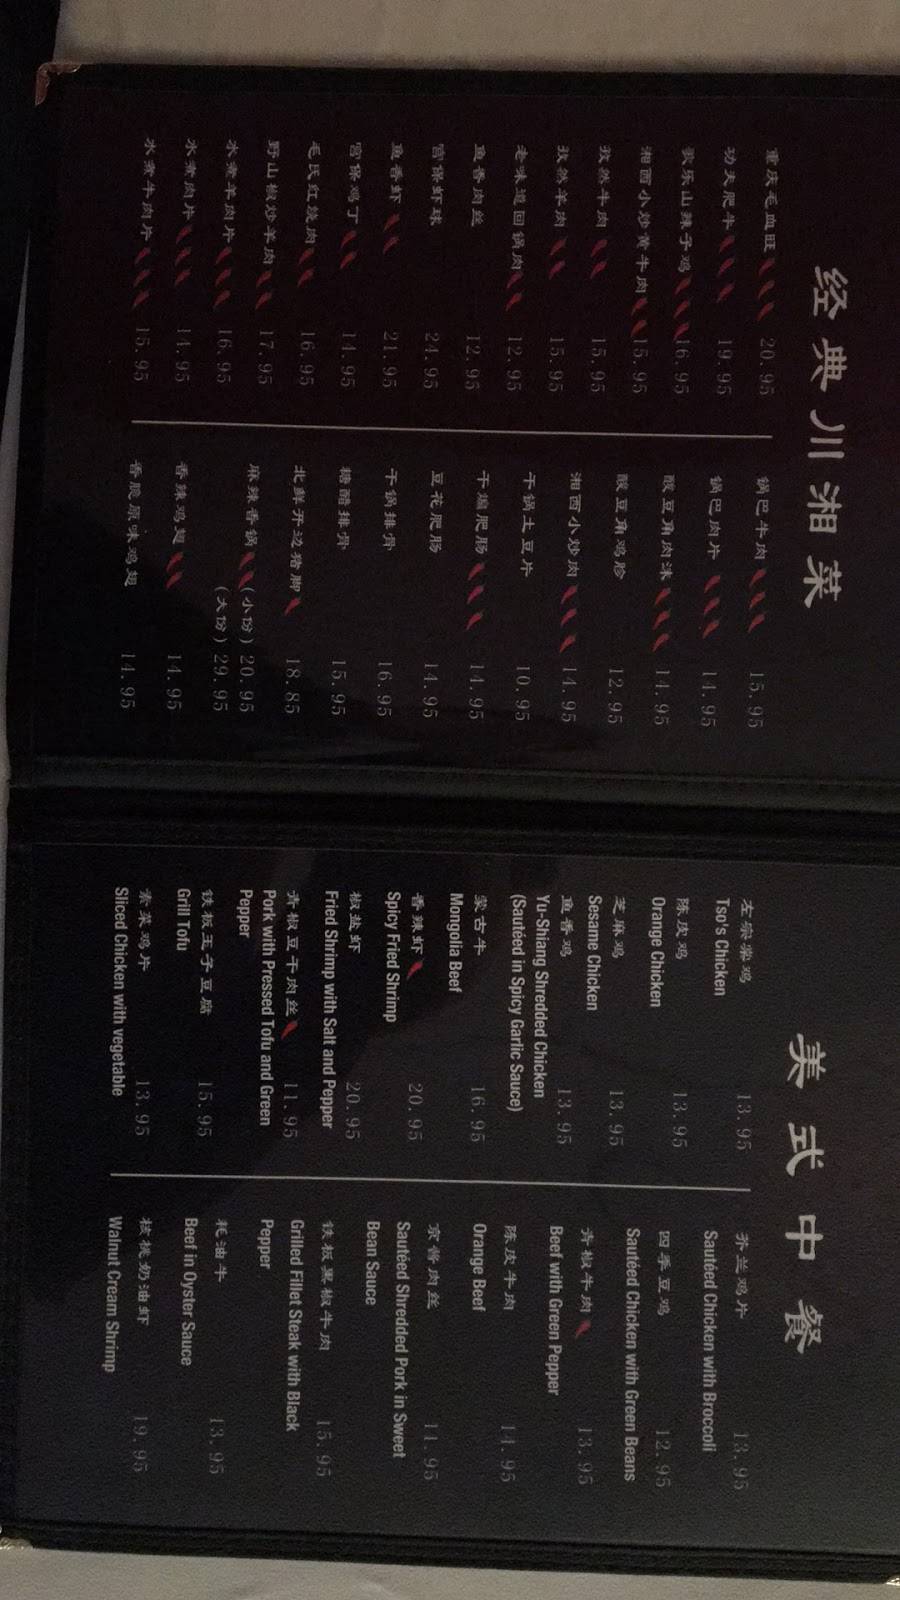 经典川湘菜
重庆毛血旺 20.95
功夫肥牛 19.95
欢乐山辣子鸡 16.95
湘西小炒黄牛肉 15.95
孜然牛肉 15.95
孜然羊肉 15.95
老味道回锅肉 12.95
鱼香肉丝 12.95
宫保虾球 24.95
鱼香虾 21.95
宫保鸡丁 14.95
毛氏红烧肉 16.95
野山椒炒羊肉 17.95
水煮羊肉片 16.95
水煮肉片 14.95
水煮牛肉片 15.95
锅巴牛肉 15.95
锅巴肉片 14.95
酸豆角肉沫 14.95
酸豆角鸡胗 12.95
湘西小炒肉 14.95
干锅土豆片 10.95
干煸肥肠 14.95
豆花肥肠 14.95
干锅排骨 16.95
糖醋排骨 15.95
北鲜开边猪脚 18.85
麻辣香锅(小份) 20.95
(大份) 29.95
香辣鸡翅 14.95
香脆原味鸡翅 14.95
美式中餐
左宗棠鸡 13.95
Tso's Chicken
陈皮鸡 13.95
Orange Chicken
芝麻鸡 13.95
Sesame Chicken
鱼香鸡 13.95
Yu-Shiang Shredded Chicken
(Sautéed in Spicy Garlic Sauce)
蒙古牛 16.95
Mongolia Beef
香辣虾 20.95
Spicy Fried Shrimp
椒盐虾 20.95
Fried Shrimp with Salt and Pepper
青椒豆干肉丝 11.95
Pork with Pressed Tofu and Green
Pepper
铁板玉子豆腐 15.95
Grill Tofu
素菜鸡片 13.95
Sliced Chicken with vegetable
芥兰鸡片 13.95
Sautéed Chicken with Broccoli
四季豆鸡 12.95
Sautéed Chicken with Green Beans
青椒牛肉 13.95
Beef with Green Pepper
陈皮牛肉 14.95
Orange Beef
京酱肉丝 11.95
Sautéed Shredded Pork in Sweet
Bean Sauce
铁板黑椒牛肉 15.95
Grilled Fillet Steak with Black
Pepper
耗油牛 13.95
Beef in Oyster Sauce
核桃奶油虾 19.95
Walnut Cream Shrimp